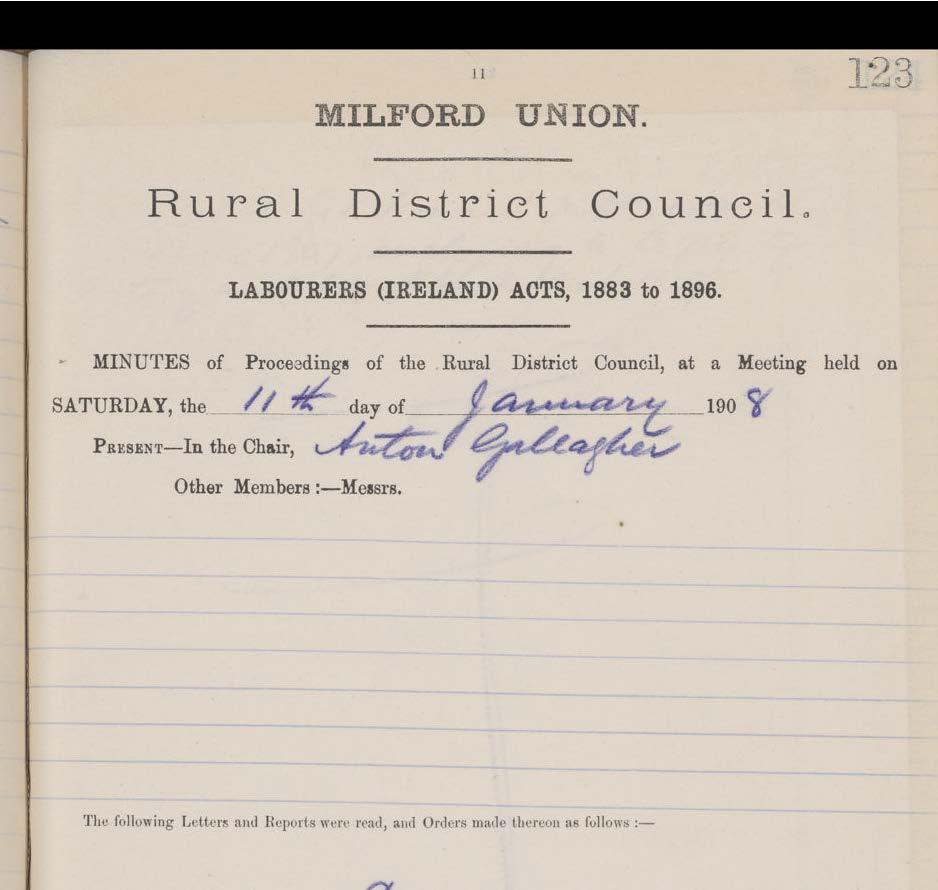 11
123
MILFORD UNION.
Rural District Council.
LABOURERS (IRELAND) ACTS, 1883 to 1896.
MINUTES of Proceedings of the Rural District Council, at a Meeting held on
SATURDAY, the 11th day of January 1908
PRESENT—In the Chair, Anton Gallagher
Other Members :—Messrs.
The following Letters and Reports were read, and Orders made thereon as follows :—